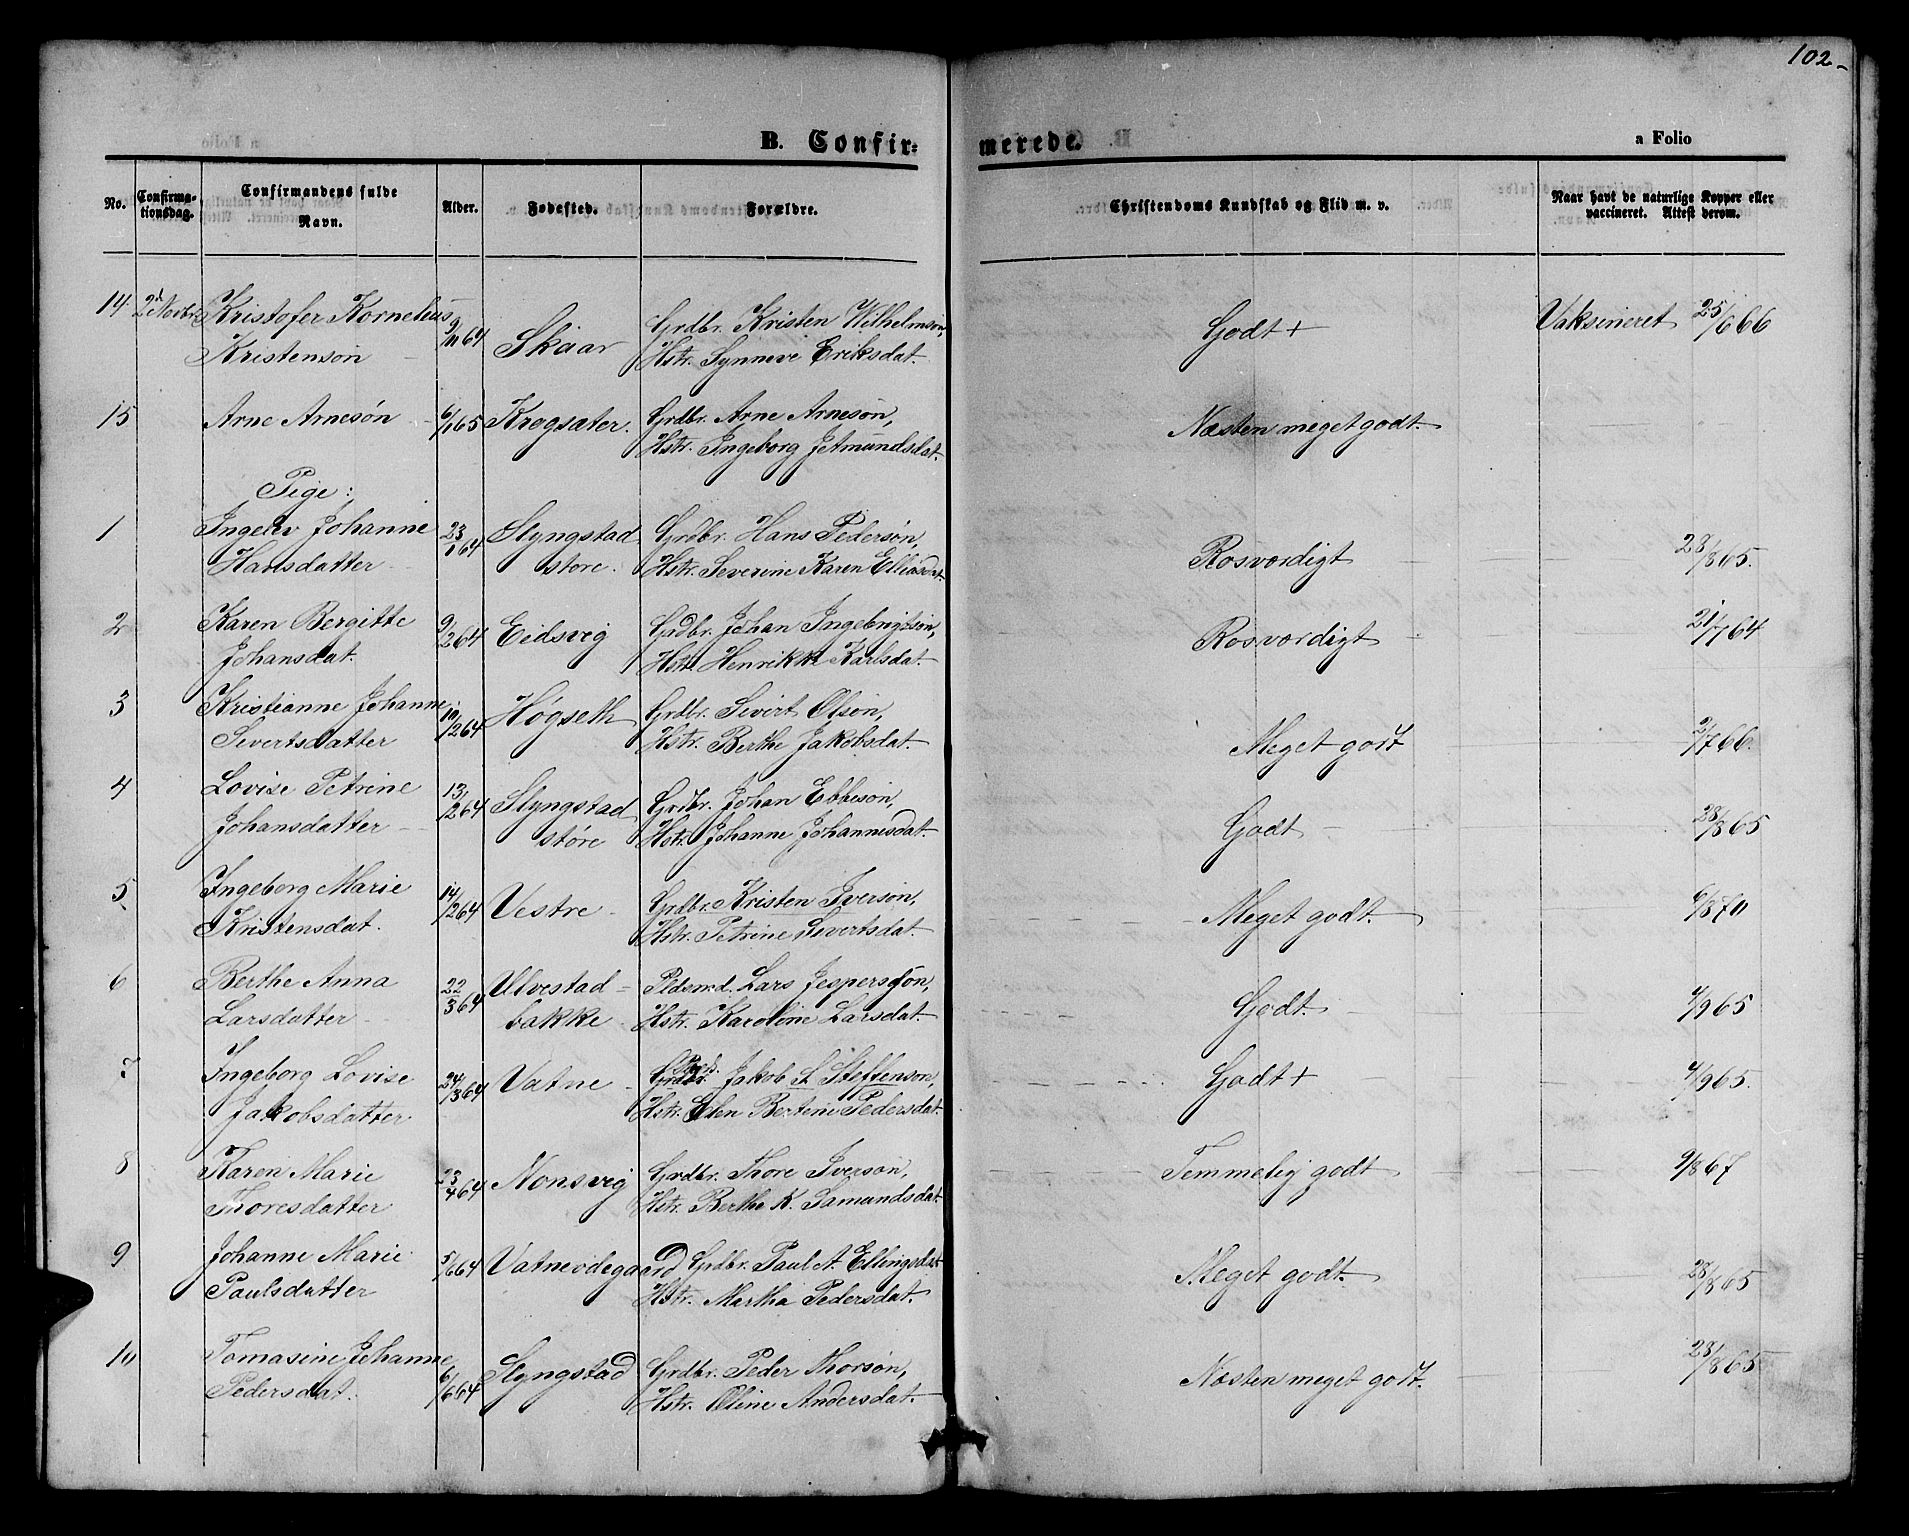 102
B. Confir=
merede.
a Folio
No.
Confirma-
tionsdag.
Confirmandens fulde
Navn.
Alder.
Fødested.
Forældre.
Christendoms Kundskab og Flid m. v.
Naar havt de naturlige Kopper eller
vaccineret. Attest derom.
14 2d Novbr. Kristofer Kornelius 9/11 64 Skaar Grdbr. Kristen Wilhelmsøn, Godt + Vaksineret 25/6 66
Kristensøn Hstr. Synneve Eriksdat.
15 Arne Arnesøn 6/1 65 Krogsæter. Grdbr. Arne Arnesøn, Næsten meget godt.
Hstr. Ingeborg Jetmundsdat.
Pige:
1 Ingelev Johanne 23/1 64 Slyngstad Grdbr. Hans Pedersøn, Rosværdigt 28/8 65.
Hansdatter store. Hstr. Severine Karen Elliasdat.
2 Karen Bergitte 9/2 64 Eidsvig Grdbr. Johan Ingebrigtsøn, Rosværdigt 21/7 64
Johansdat. Hstr. Henrikke Karlsdat.
3 Kristianne Johanne 10/2 64 Høgseth Grdbr. Sivert Olsøn, Meget godt 2/7 66.
Sivertsdatter Hstr. Berthe Jakobsdat.
4 Lovise Petrine 13/2 64 Slyngstad Grdbr. Johan Ebbesøn, Godt 28/8 65
Johansdatter støre Hstr. Johanne Johannesdat.
5 Ingeborg Marie 14/2 64 Vestre Grdbr. Kristen Iversøn, Meget godt. 6/8 70
Kristensdat. Hstr. Petrine Sivertsdat.
6 Berthe Anna 22/3 64 Ulvestad- Pldsmd. Lars Jespersøn, Godt. 4/9 65
Larsdatter bakke Hstr. Karoline Larsdat.
7 Ingeborg Lovise 24/3 64 Vatne Grdbr. Jakob S. Steffensøn, Godt + 4/9 65.
Jakobsdatter Hstr. Elen Bertine Pedersdat.
8 Karen Marie 23/4 64 Nonsvig Grdbr. Thore Iversøn, Temmelig godt 9/8 67
Thoresdatter Hstr. Berthe K. Samundsdat.
9 Johanne Marie 5/6 64 Vatneødegaard Grdbr. Paul A. Ellingsdat Meget godt. 28/8 65
Paulsdatter Hstr. Martha Pedersdat.
10 Tomasine Johanne 6/6 64 Slyngstad Grdbr. Peder Thorsøn, Næsten meget godt. 28/8 65
Pedersdat. Hstr. Oline Andersdat.